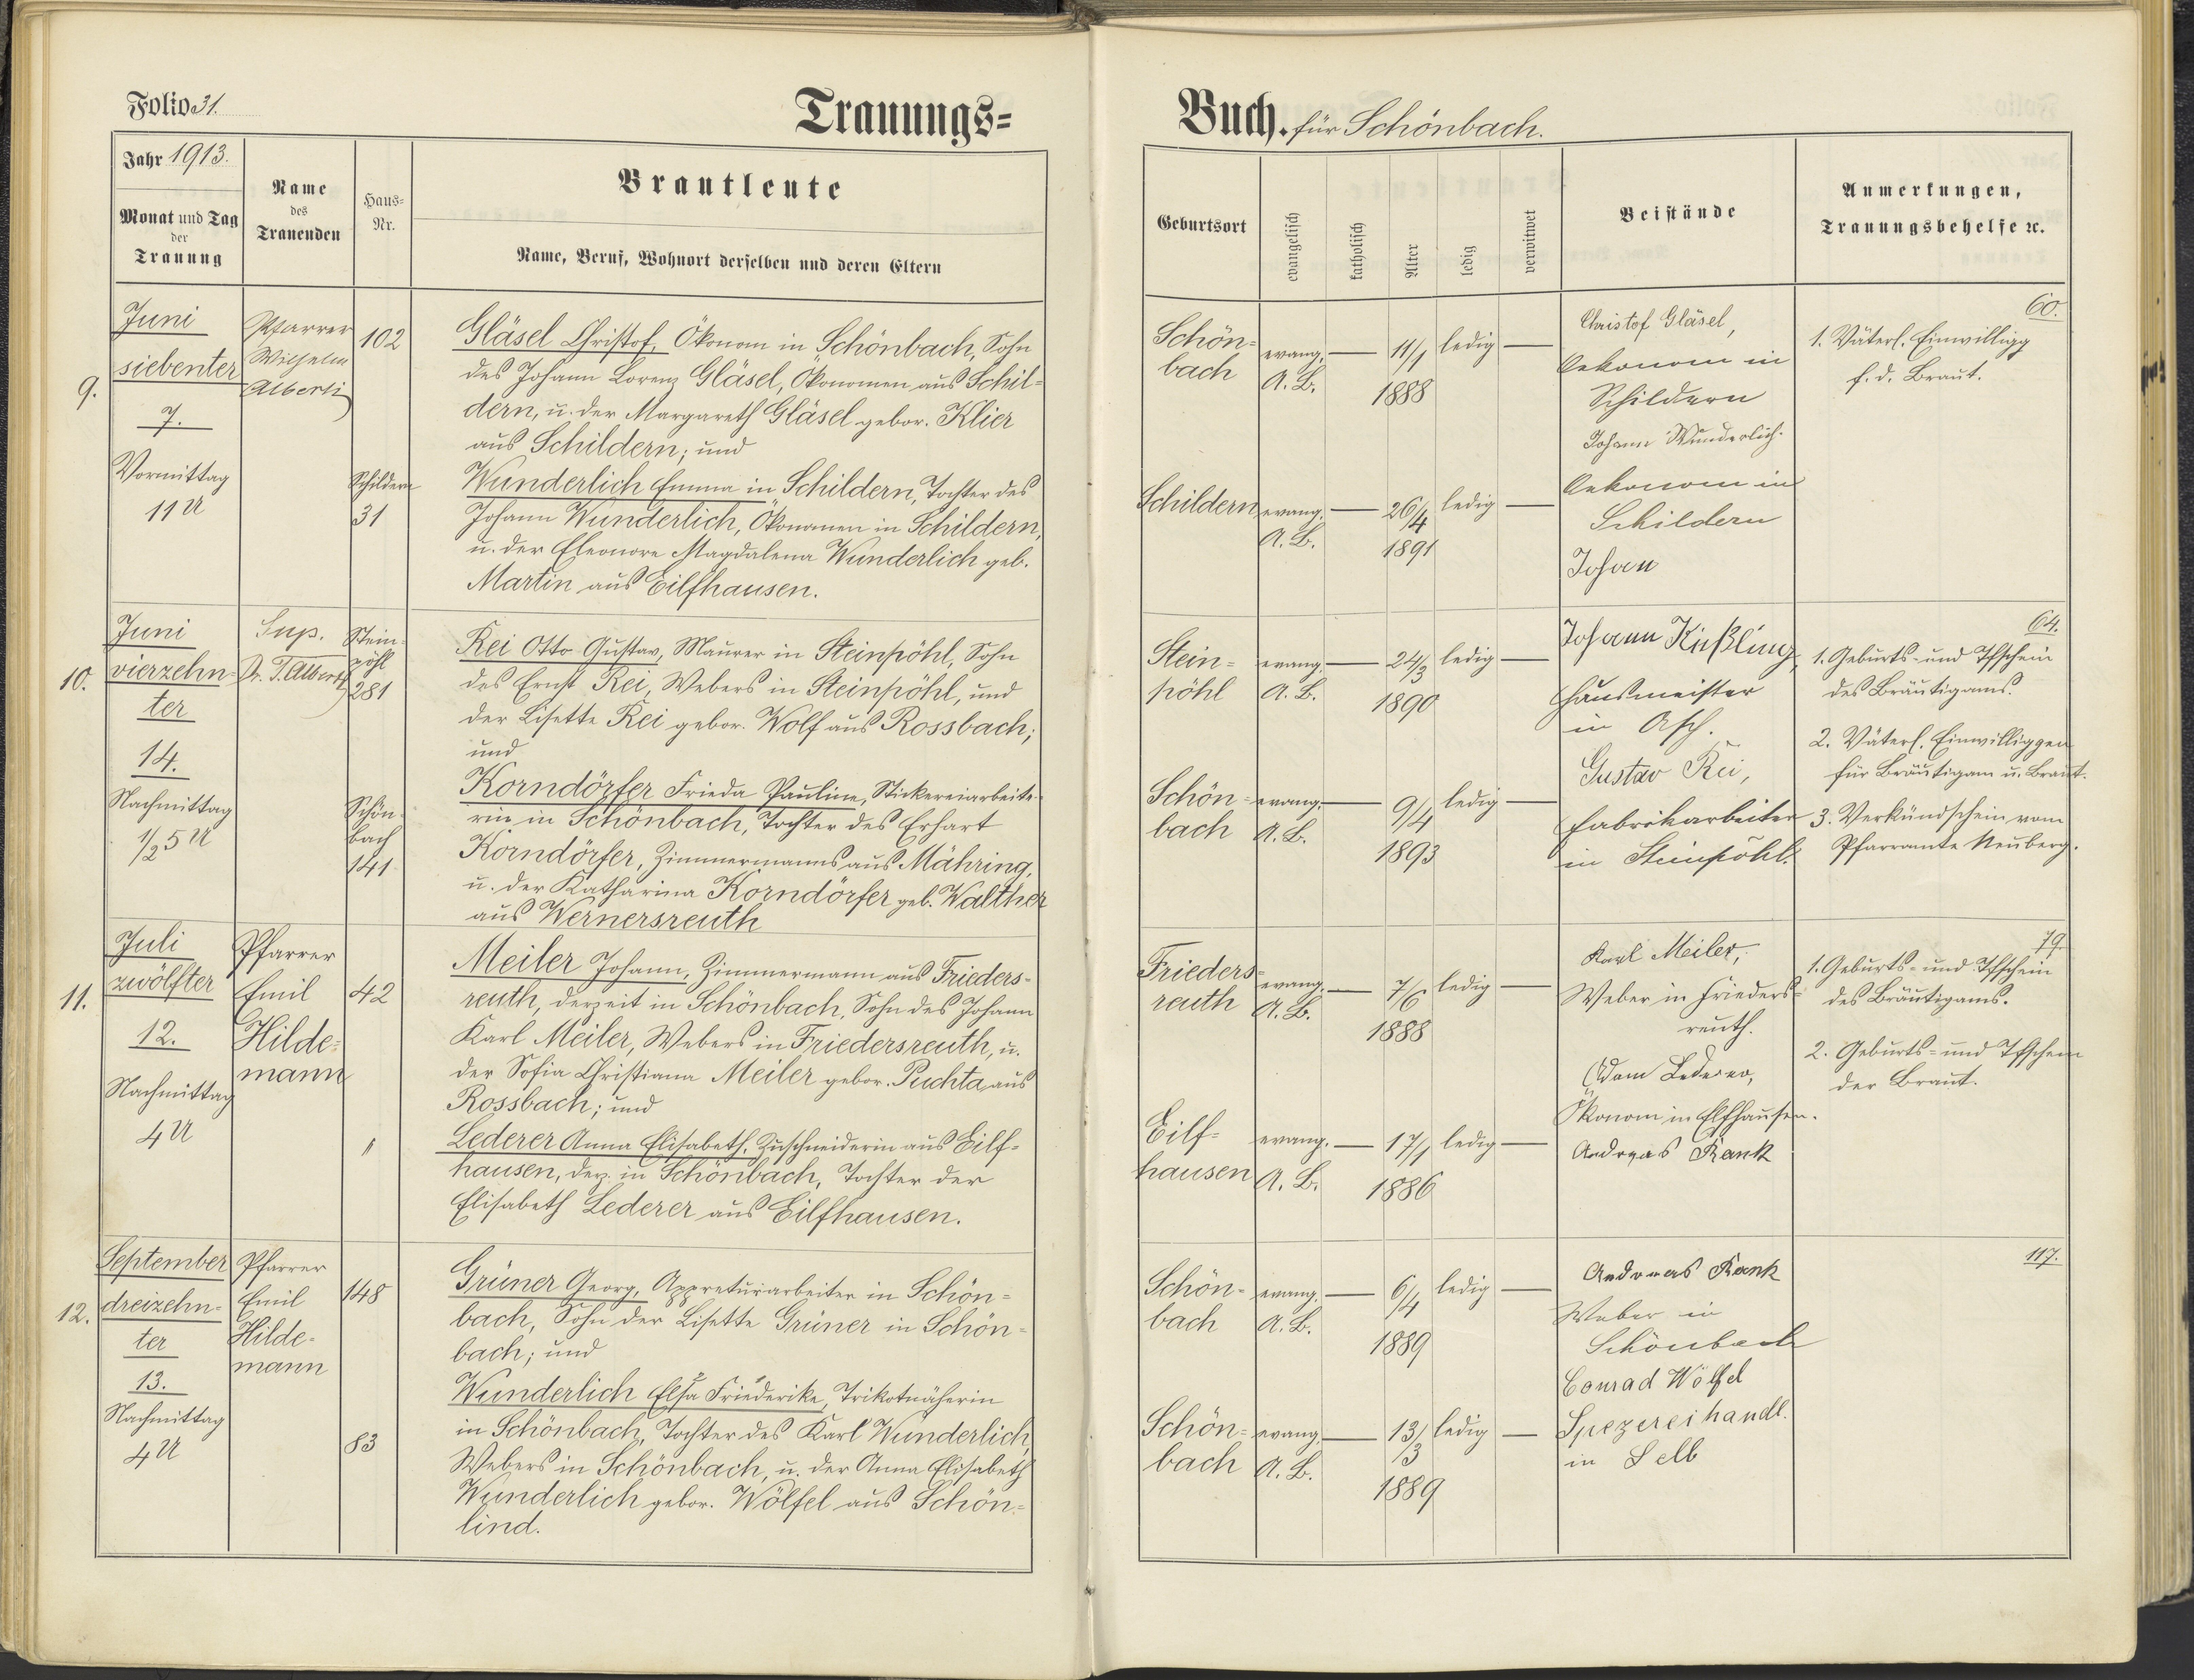 Folio 31.
Trauungs=
Jahr 1913.
Monat und Tag
der
Trauung
Name
des
Trauenden
Haus=
Nr.
Brautleute
Name, Beruf, Wohnort derselben und deren Eltern
9.
Juni
siebenter
7.
Vormittag
11 U
Pfarrer
Wilhelm
Alberti
102
Schildern
31
Gläsel Christof, Ökonom in Schönbach, Sohn
des Johann Lorenz Gläsel, Ökonomen aus Schil=
dern, u. der Margareth Gläsel gebor. Klier
aus Schildern; und
Wunderlich Emma in Schildern, Tochter des
Johann Wunderlich, Ökonomen in Schildern,
u. der Eleonore Magdalena Wunderlich geb.
Martin aus Eilfhausen.
10.
Juni
vierzehn=
ter
14.
Nachmittag
1/2 5 U
Sup.
Dr. T. Alberti
Stein=
pöhl
281
Schön=
bach
141
Rei Otto Gustav, Maurer in Steinpöhl, Sohn
des Ernst Rei, Webers in Steinpöhl, und
der Lisette Rei gebor. Wolf aus Rossbach;
und
Korndörfer Frieda Pauline, Stickereiarbeite=
rin in Schönbach, Tochter des Erhart
Korndörfer, Zimmermanns aus Mähring,
u. der Katharina Korndörfer geb. Walther
aus Wernersreuth
11.
Juli
zwölfter
12.
Nachmittag
4 U
Pfarrer
Emil
Hilde=
mann
42
"
Meiler Johann, Zimmermann aus Frieders=
reuth, derzeit in Schönbach, Sohn des Johann
Karl Meiler, Webers in Friedersreuth, u.
der Sofia Christiana Meiler gebor. Puchta aus
Rossbach; und
Lederer Anna Elisabeth, Zuschneiderin aus Eilf=
hausen, derz. in Schönbach, Tochter der
Elisabeth Lederer aus Eilfhausen.
12.
September
dreizehn=
ter
13.
Nachmittag
4 U
Pfarrer
Emil
Hilde=
mann
148
83
Grüner Georg, Appreturarbeiter in Schön=
bach, Sohn der Lisette Grüner in Schön=
bach; und
Wunderlich Elsa Friederike, Trikotnäherin
in Schönbach, Tochter des Karl Wunderlich,
Webers in Schönbach, u. der Anna Elisabeth
Wunderlich gebor. Wölfel aus Schön=
lind.
Buch. für Schönbach.
Geburtsort
evangelisch
katholisch
Alter
ledig
verwitwet
Beistände
Anmerkungen,
Trauungsbehelfe ꝛc.
Schön=
bach
evang.
A. B.
11/1
1888
ledig
Schildern
evang.
A. B.
26/4
1891
ledig
Christof Gläsel,
Oekonom in
Schildern
Johann Wunderlich.
Oekonom in
Schildern
Johan
60.
1. Väterl. Einwilligg
f. d. Braut.
Stein=
pöhl
evang.
A. B.
24/3
1890
ledig
Schön=
bach
evang.
A. B.
9/4
1893
ledig
Johann Küßling,
Hausmeister
in Asch.
Gustav Rei,
Fabrikarbeiter
in Steinpöhl.
64.
1. Geburts= und Tfschein
des Bräutigams.
2. Väterl. Einwilliggen
für Bräutigam u. Braut.
3. Verkündschein vom
Pfarramte Neuberg.
Frieders=
reuth
evang.
A. B.
7/6
1888
ledig
Eilf=
hausen
evang.
A. B.
17/1
1886
ledig
Karl Meiler,
Weber in Frieders=
reuth.
Adam Lederer,
Ökonom in Elfhausen.
Andreas Rank
79.
1. Geburts= und Tfschein
des Bräutigams.
2. Geburts= und Tfschein
der Braut.
Schön=
bach
evang.
A. B.
6/4
1889
ledig
Schön=
bach
evang.
A. B.
13/3
1889
ledig
Andreas Rank
Weber in
Schönbach
Conrad Wölfel
Spezereihandl.
in Selb
117.